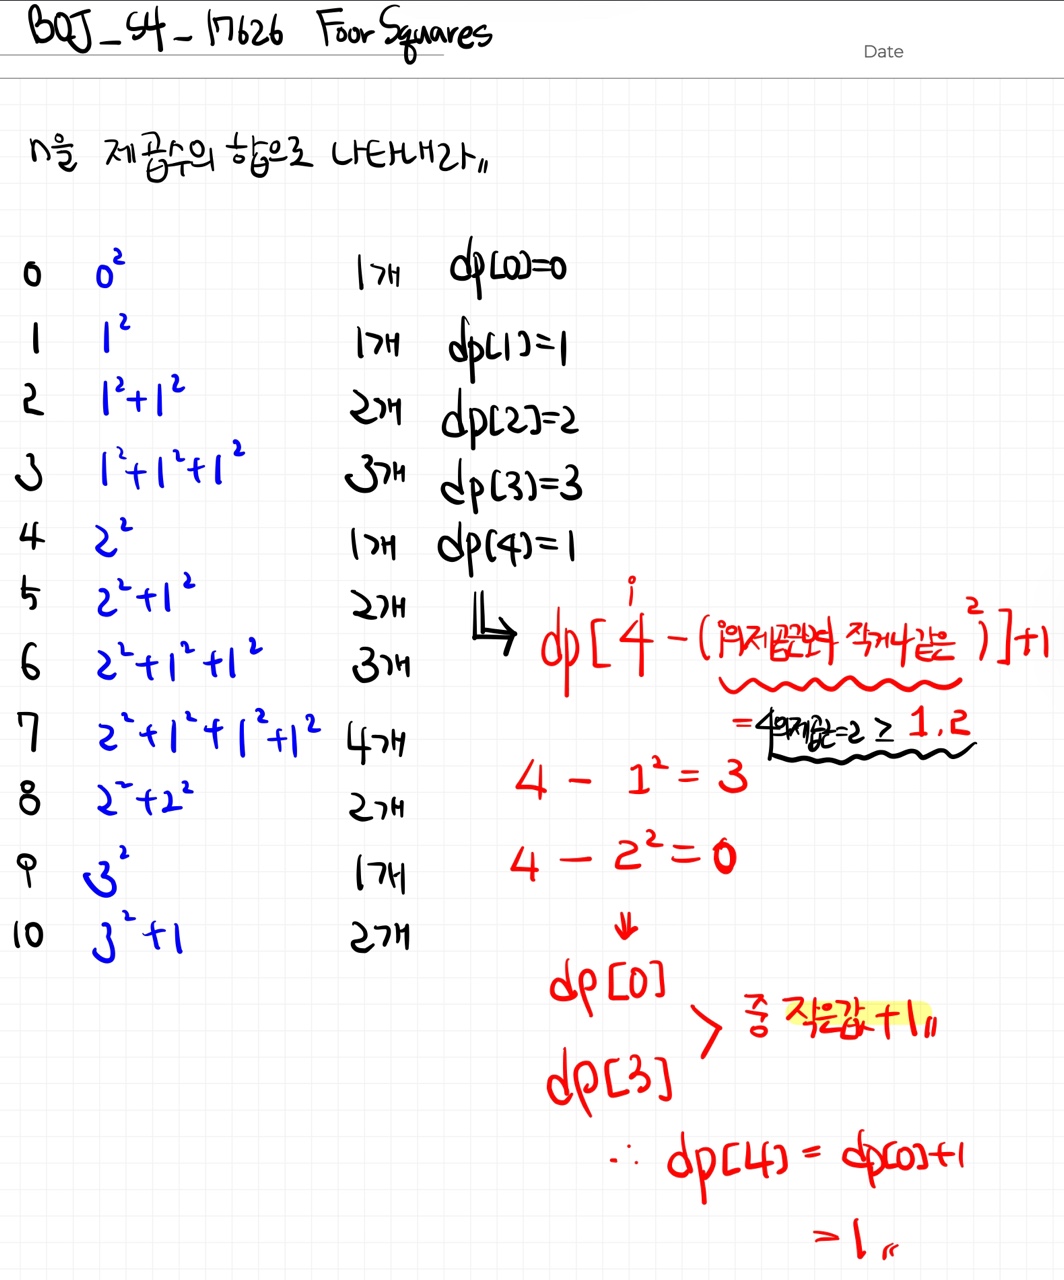 BOJ_S4_17626 Foor Squares
Date
n을 제곱수의 합으로 나타내라,,
0 0² 1개 dp[0]=0
1 1² 1개 dp[1]=1
2 1²+1² 2개 dp[2]=2
3 1²+1²+1² 3개 dp[3]=3
4 2² 1개 dp[4]=1
5 2²+1² 2개
6 2²+1²+1² 3개
7 2²+1²+1²+1² 4개
8 2²+2² 2개
9 3² 1개
10 3²+1 2개
i
dp[4-(i의제곱근보다 작거나같은²)]+1
=4의제곱근=2 ≥ 1,2
4 - 1² = 3
4 - 2² = 0
↓
dp[0]
dp[3]
> 중 작은값+1,,
∴ dp[4] = dp[0]+1
=1,,